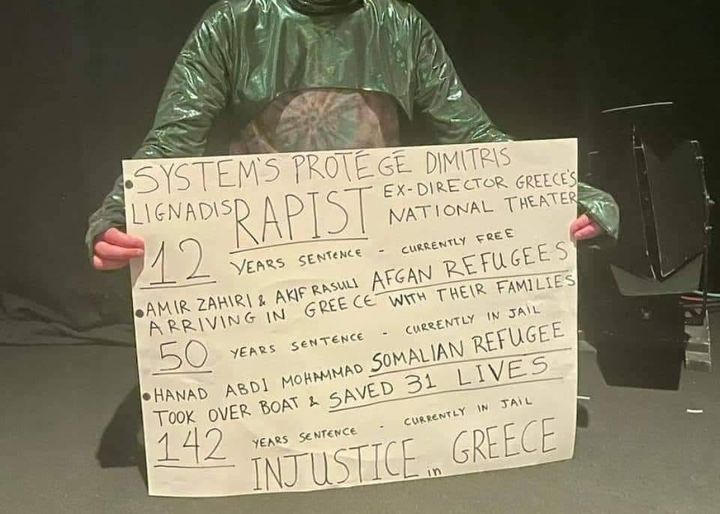 • SYSTEM'S PROTÉGÉ DIMITRIS
LIGNADIS RAPIST EX-DIRECTOR GREECE'S
NATIONAL THEATER
12 YEARS SENTENCE - CURRENTLY FREE
• AMIR ZAHIRI & AKIF RASULI AFGAN REFUGEES
ARRIVING IN GREECE WITH THEIR FAMILIES
50 YEARS SENTENCE - CURRENTLY IN JAIL
• HANAD ABDI MOHAMMAD SOMALIAN REFUGEE
TOOK OVER BOAT & SAVED 31 LIVES
142 YEARS SENTENCE - CURRENTLY IN JAIL
INJUSTICE in GREECE